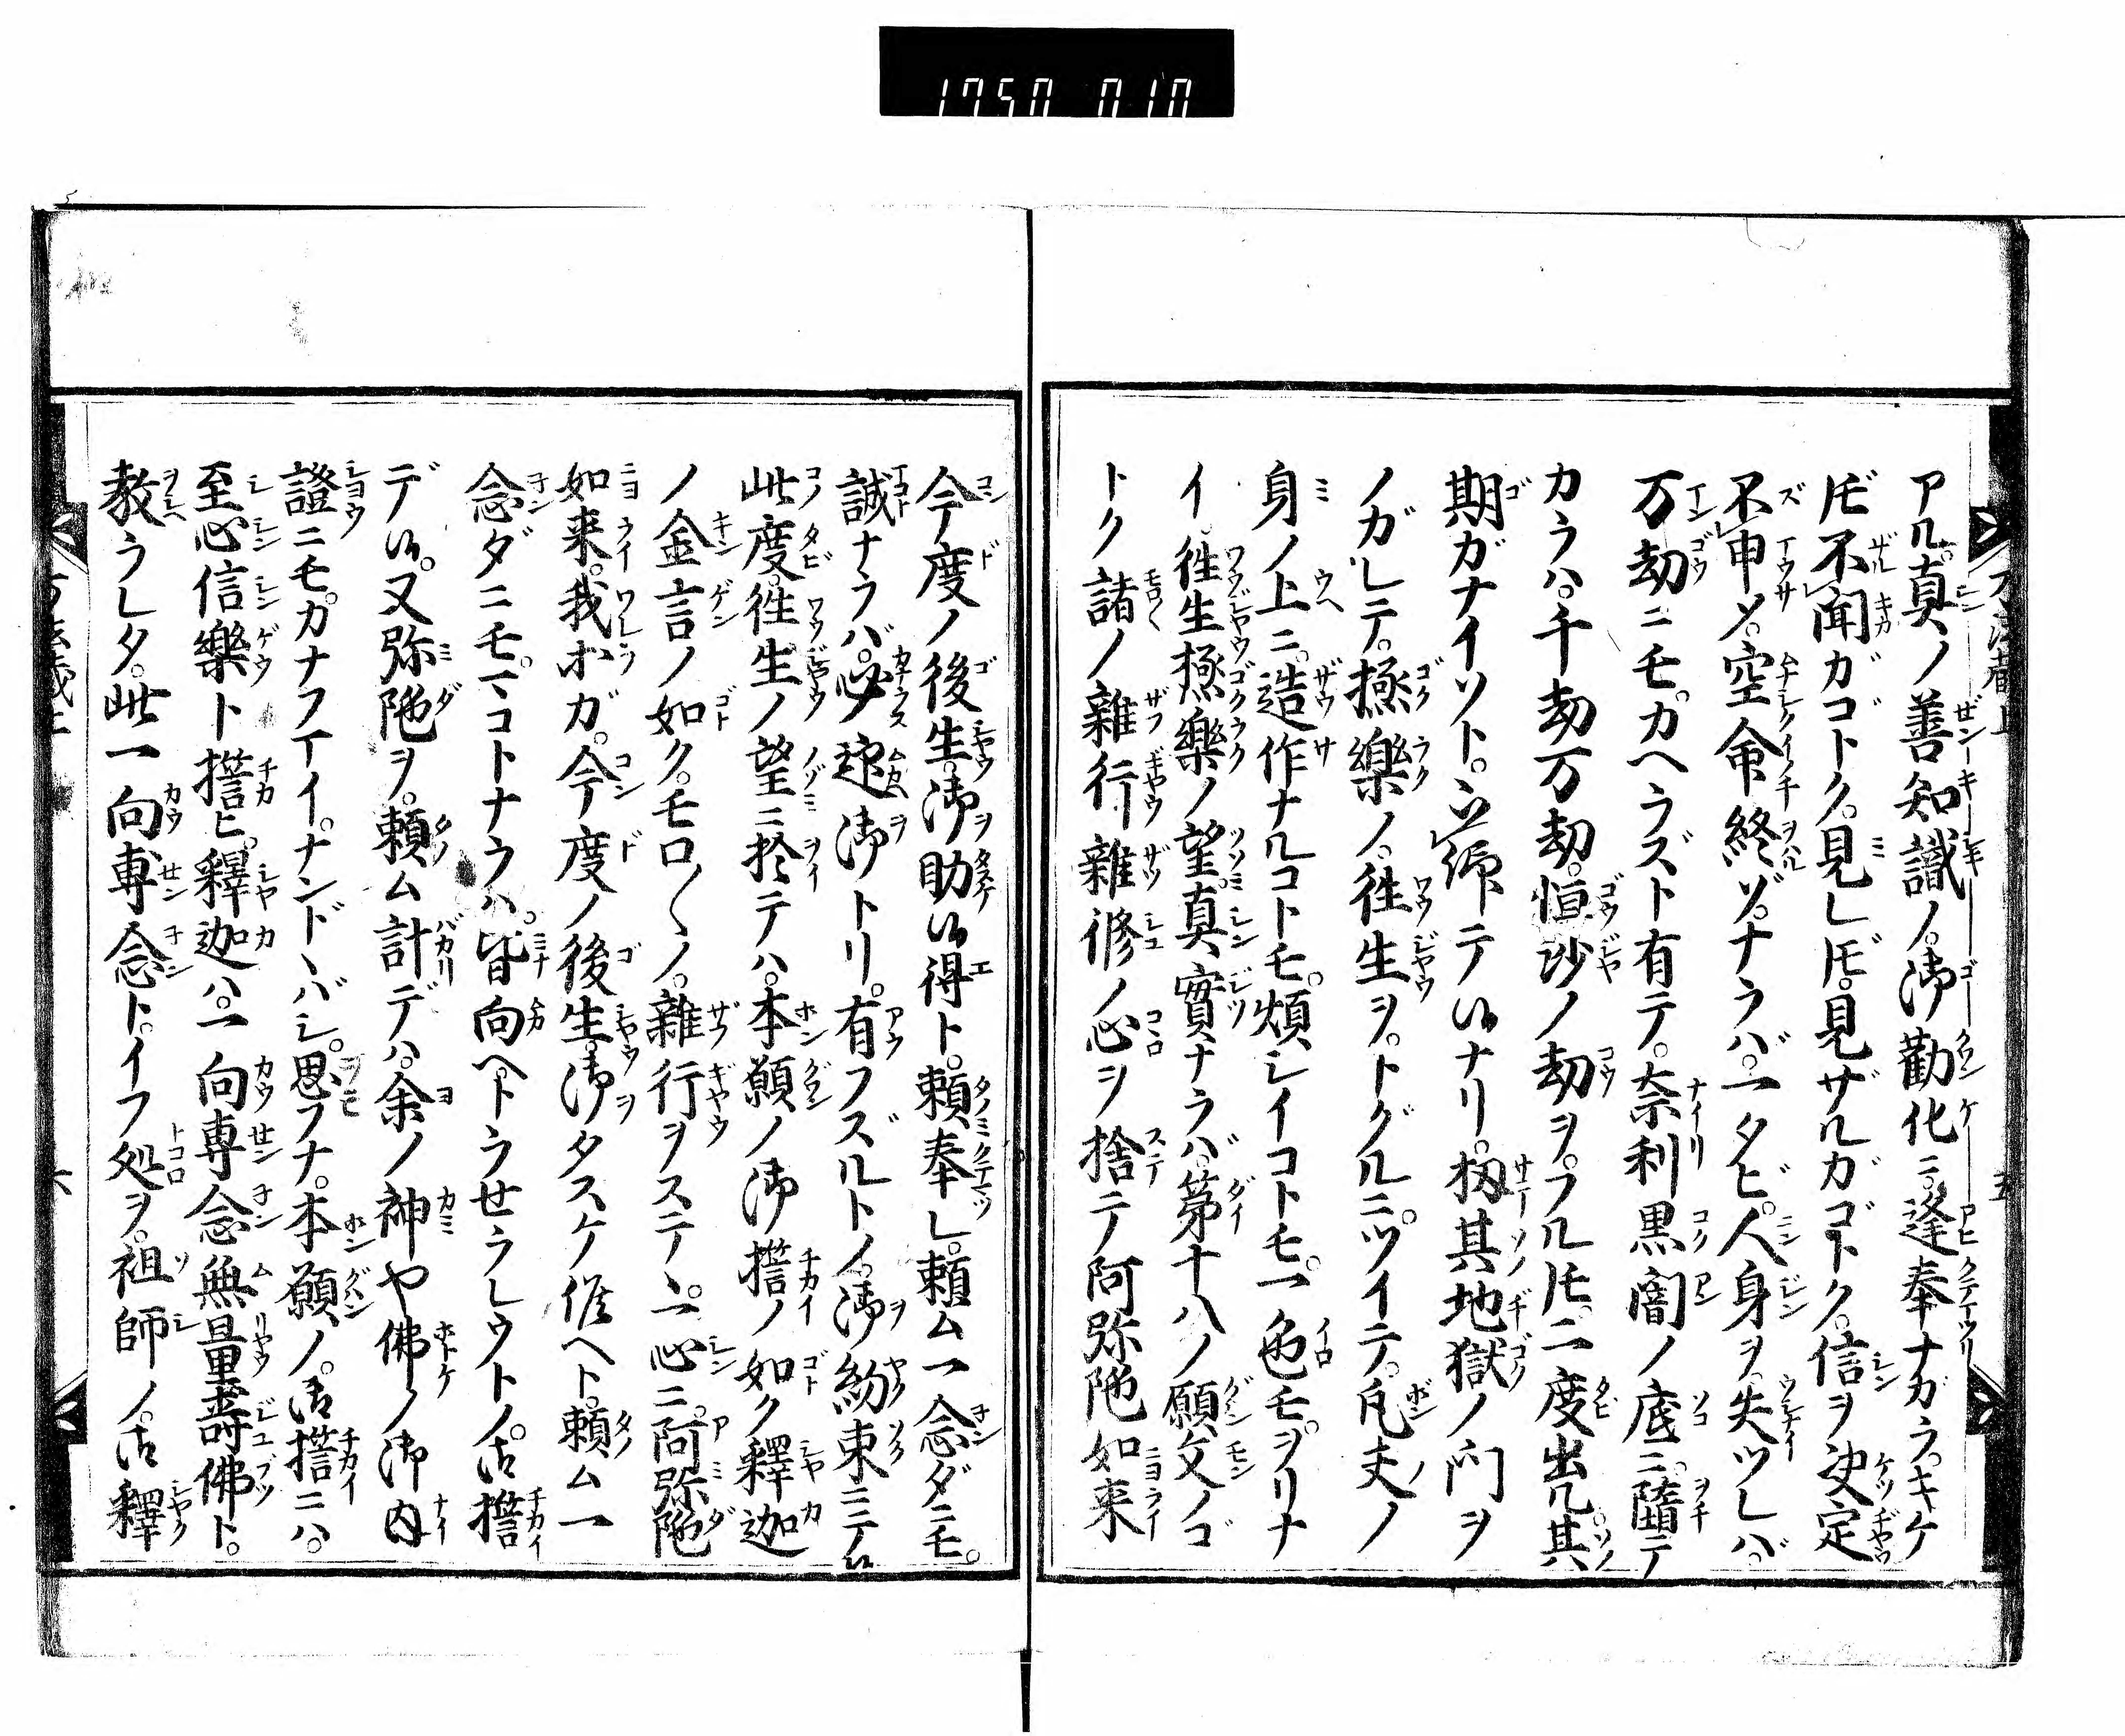 1750 010
アル。真ノ善知識ノ。御勧化ニ。逢奉ナガラ。キケ
𪜈不聞ガゴトク。見レ𪜈。見ザルガゴトク。信ヲ決定
不申〆。空命終ゾ。ナラバ。一タビ。人身ヲ。失ツレバ。
万劫ニモ。カヘラズト有テ。奈利黒闇ノ底ニ。墮テ
カラハ。千劫万劫。恒沙ノ劫ヲ。フル𪜈。二度出ル。其
期ガナイソト。御テ候ナリ。扨其地獄ノ門ヲ
ノガレテ。極樂ノ。徃生ヲ。トグルニ。ツイテ。凡夫ノ
身ノ上ニ。造作ナルコトモ。煩シイコトモ。一色モ。ヲリナ
イ。徃生極樂ノ望。真實ナラバ。第十八ノ願文ノゴ
トク諸ノ雜行雜修ノ心ヲ捨テ阿弥陀如来
今度ノ後生。御助候得ト。頼奉レ。頼ム一念ダニモ。
誠ナラバ。必迎御トリ。有フズルトノ。御約束ニテ候
此度。徃生ノ望ニ於テハ。本願ノ御誓ノ如ク釋迦
ノ金言ノ如ク。モロ〳〵ノ。雜行ヲステヽ。一心ニ。阿弥陀
如来。我等ガ。今度ノ後生。御タスケ候ヘト。頼ム一
念ダニモ。マコトナラハ。皆向ヘトラせラレウトノ。御誓
デ候。又弥陀ヲ。頼ム計デハ。余ノ神や佛ノ御内
證ニモ。カナフマイ。ナンドヽバシ。思フナ。本願ノ。御誓ニハ。
至心信樂ト誓ヒ。釋迦ハ。一向専念無量壽佛ト。
教ラレタ。此一向専念ト。イフ処ヲ。祖師ノ。御釋